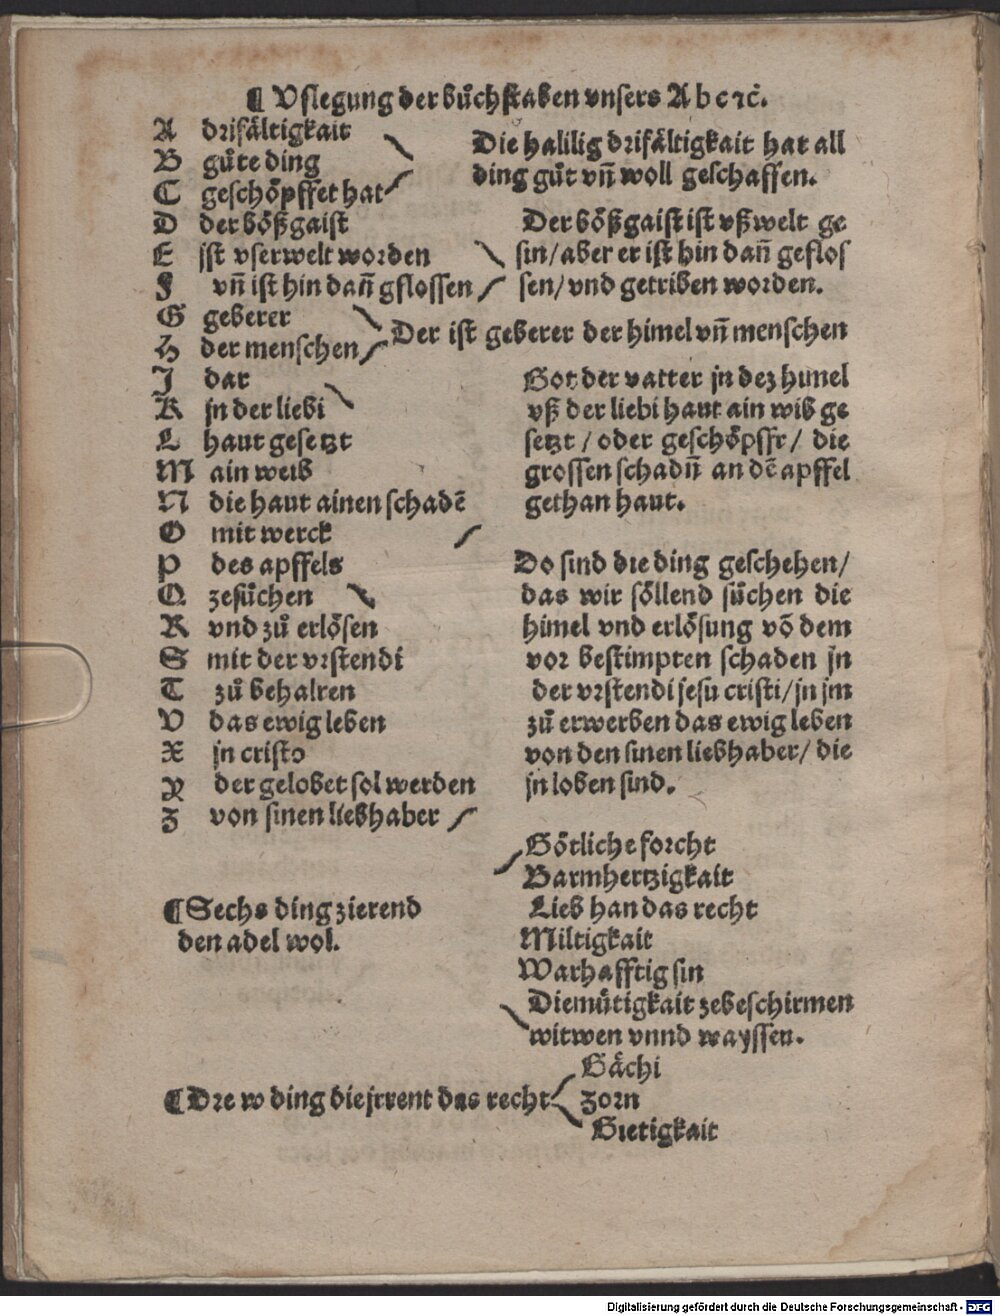 ¶ Vſlegung der bůchſtaben vnſers A b c ⁊c̃.
A drifåltigkait
B gůte ding
C geſchöpffet hat
Die halilig drifåltigkait hat all
ding gůt vñ woll geſchaffen.
D der bößgaiſt
E jſt vſerwelt worden
F vñ iſt hin dañ gfloſſen
Der bößgaiſt iſt vß welt ge
ſin/ aber er iſt hin dañ gefloſ
ſen/ vnd getriben worden.
G geberer
H der menſchen
Der iſt geberer der himel vñ menſchen
I dar
K jn der liebi
L haut geſetzt
M ain weib
N die haut ainen ſchadē
O mit werck
Got der vatter jn dez himel
vß der liebi haut ain wib ge
ſetzt / oder geſchöpffr / die
groſſen ſchadñ an dē apffel
gethan haut.
P des apffels
Q zeſůchen
R vnd zů erlöſen
S mit der vrſtendi
T zů behalren
V das ewig leben
X jn criſto
Y der gelobet ſol werden
Z von ſinen liebhaber
Do ſind die ding geſchehen/
das wir ſöllend ſůchen die
himel vnd erlöſung võ dem
vor beſtimpten ſchaden jn
der vrſtendi jeſu criſti/ jn jm
zů erwerben das ewig leben
von den ſinen liebhaber/ die
jn loben ſind.
¶ Sechs ding zierend
den adel wol.
Götliche forcht
Barmhertzigkait
Lieb han das recht
Miltigkait
Warhafftig ſin
Diemůtigkait zebeſchirmen
witwen vnnd wayſſen.
¶ Dre w ding die jrrent das recht
Gåchi
Zorn
Gietigkait
Digitalisierung gefördert durch die Deutsche Forschungsgemeinschaft - DFG